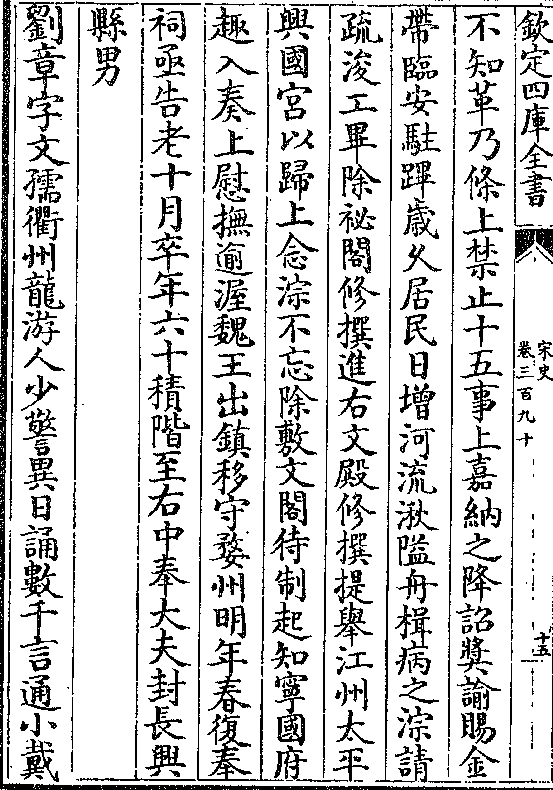 欽定四庫全書
宋史
卷三百九十
十五
不知革乃條上禁止十五事上嘉納之降詔奬諭賜金
帶臨安駐蹕歲久居民日增河流湫隘舟楫病之淙請
疏浚工畢除祕閣修撰進右文殿修撰提舉江州太平
興國宮以歸上念淙不忘除敷文閣待制起知寧國府
趣入奏上慰撫逾渥魏王出鎮移守婺州明年春復奉
祠亟告老十月卒年六十積階至右中奉大夫封長興
縣男
劉章字文孺衢州龍游人少警異日誦數千言通小戴